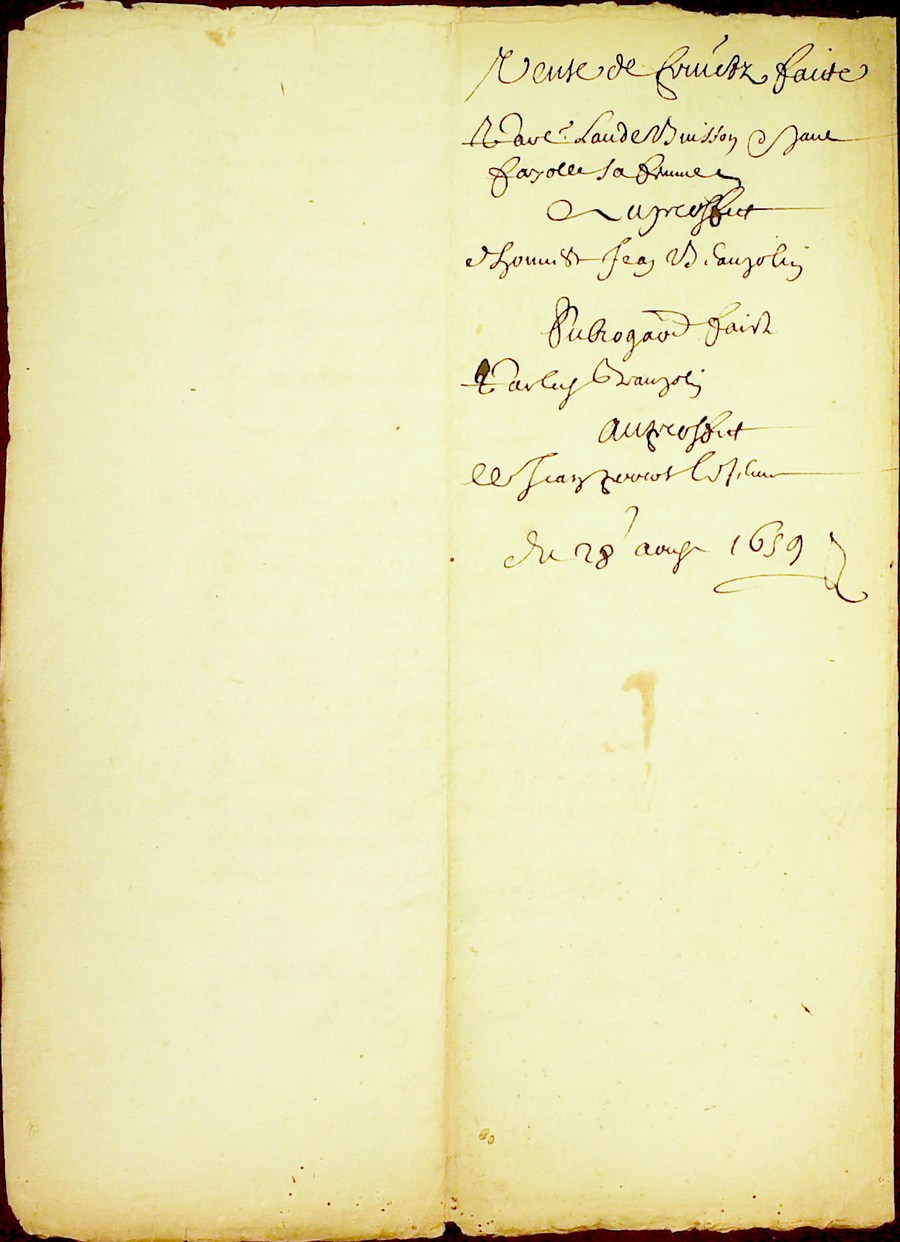 Vente de fruictz faicte
Par Claude Buisson & Jane
fayolle sa femme
Au proffict
d'honneste Jean Beaujolin
Subrogaõn faicte
Par led Beaujolin
au proffict
de Jean perrot
du 28 aoust 1659